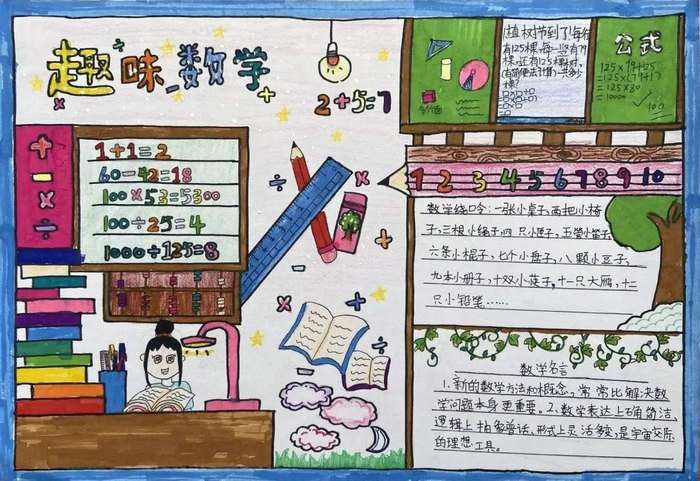 趣味数学
2+5=7
1+1=2
60-42=18
100×53=5300
100÷25=4
1000÷125=8
植树节到了!每份
有125棵,每一份有79
棵,还有125棵树,
棵?
公式
125×79+125
=125×(79+1)
=125×80
=10000
100
1 2 3 4 5 6 7 8 9 10
数学绕口令:一张小桌子,两把小椅
子,三根小绳子,四只小匣子,五管小笛子,
六条小棍子,七个小盘子,八颗小豆子,
九本小册子,十双小筷子。十一只大雁,十二
只小铅笔……
数学名言
1、新的数学方法和概念,常常比解决数
学问题本身更重要。2、数学表达上准确简洁、
逻辑上抽象普适、形式上灵活多变,是宇宙交际
的理想工具。